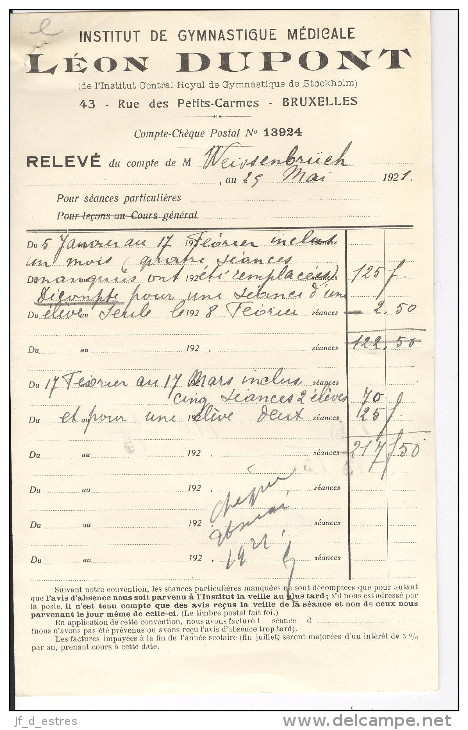 INSTITUT DE GYMNASTIQUE MÉDICALE
LÉON DUPONT
(de l'Institut Central Royal de Gymnastique de Stockholm)
43 - Rue des Petits-Carmes - BRUXELLES
Compte-Chèque Postal No 13924
RELEVÉ du compte de M Weissenbruch
au 25 Mai 1921.
Pour séances particulières
Pour leçons au Cours général
Du 5 Janvier au 17 192 Février inclus
un mois (quatre séances
Du manquées ont 192 été remplacées) 125 f
Décompte pour une séance d'une
Du élève seule le 192 8 Février séances — 2.50
Du au 192 . séances 122,50
Du 17 Février au 17 Mars inclus
cinq séances 2 élèves 70
Du et pour une 192 élève deux séances 25 f
Du au 192 . séances 217 f 50
Du au 192 . séances
Du au 192 séances
Du au 192 séances
Du au 192 séances
1921
Suivant notre convention, les séances particulières manquées ne sont décomptées que pour autant
que l'avis d'absence nous soit parvenu à l'Institut la veille au plus tard ; s'il nous est adressé par
la poste, il n'est tenu compte que des avis reçus la veille de la séance et non de ceux nous
parvenant le jour même de celle-ci. (Le timbre postal fait foi.)
En application de cette convention, nous avons facturé 1 séance d
(nous n'avons pas été prévenus ou avons reçu l'avis d'absence trop tard).
Les factures impayées à la fin de l'année scolaire (fin juillet) seront majorées d'un intérêt de 5 %
par an, prenant cours à cette date.
jf_d_estres
delcampe.net